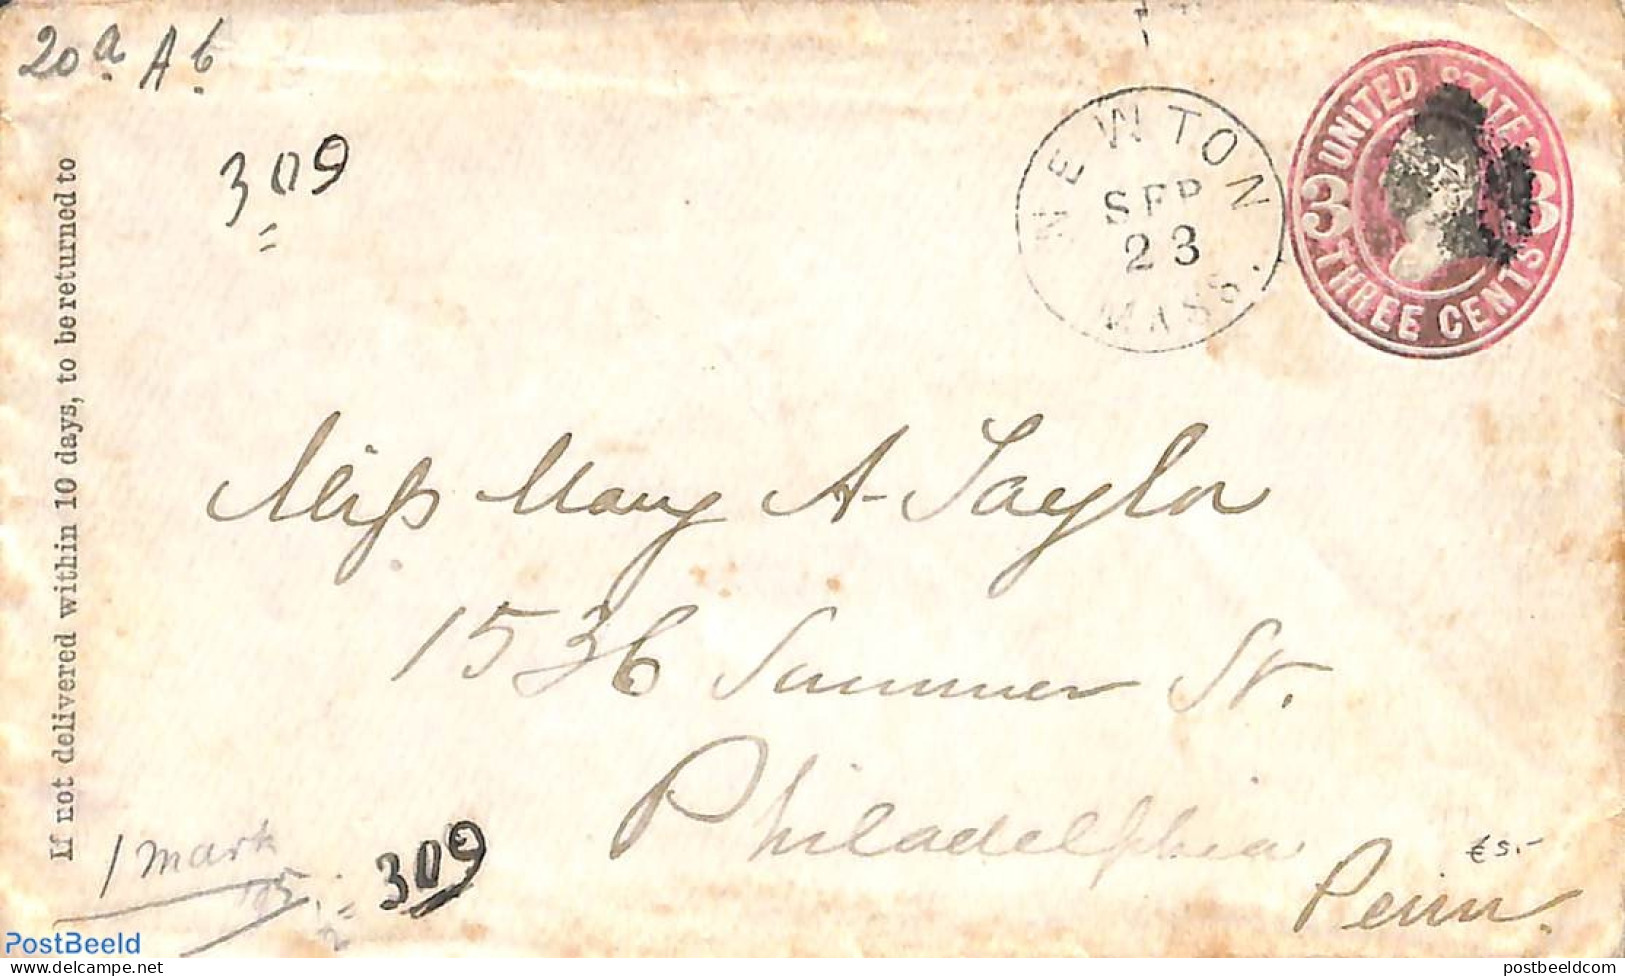 20a A 6
309
If not delivered within 10 days, to be returned to
NEWTON
SEP
23
MASS.
UNITED STATES
3 3
THREE CENTS
Miss Mary A Taylor
1536 Summer St.
Philadelphia
Penn.
€ 5.-
1 mark
309
PostBeeld
postbeeldcom